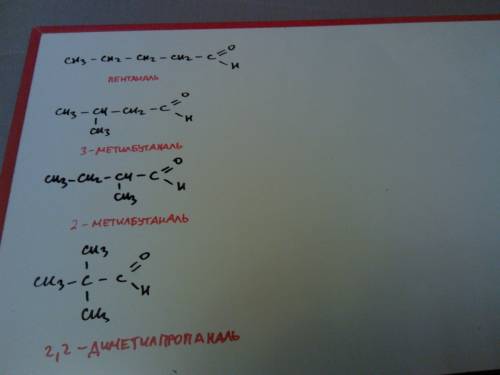 CH₃ - CH₂ - CH₂ - CH₂ - C = O
H
ПЕНТАНАЛЬ
CH₃ - CH - CH₂ - C = O
CH₃ H
3-МЕТИЛБУТАНАЛЬ
CH₃ - CH₂ - CH - C = O
CH₃ H
2-МЕТИЛБУТАНАЛЬ
CH₃
CH₃ - C - C = O
CH₃ H
2,2-ДИМЕТИЛПРОПАНАЛЬ